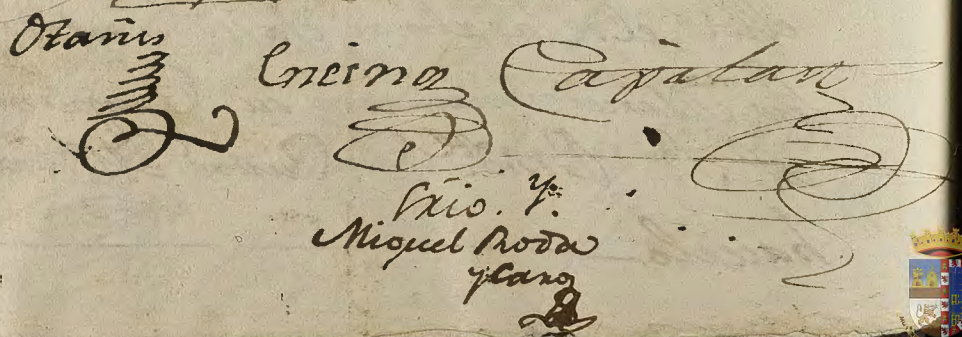 Otañes Encina Capatan
Srio. Yo.
Miguel Roda
y Caro